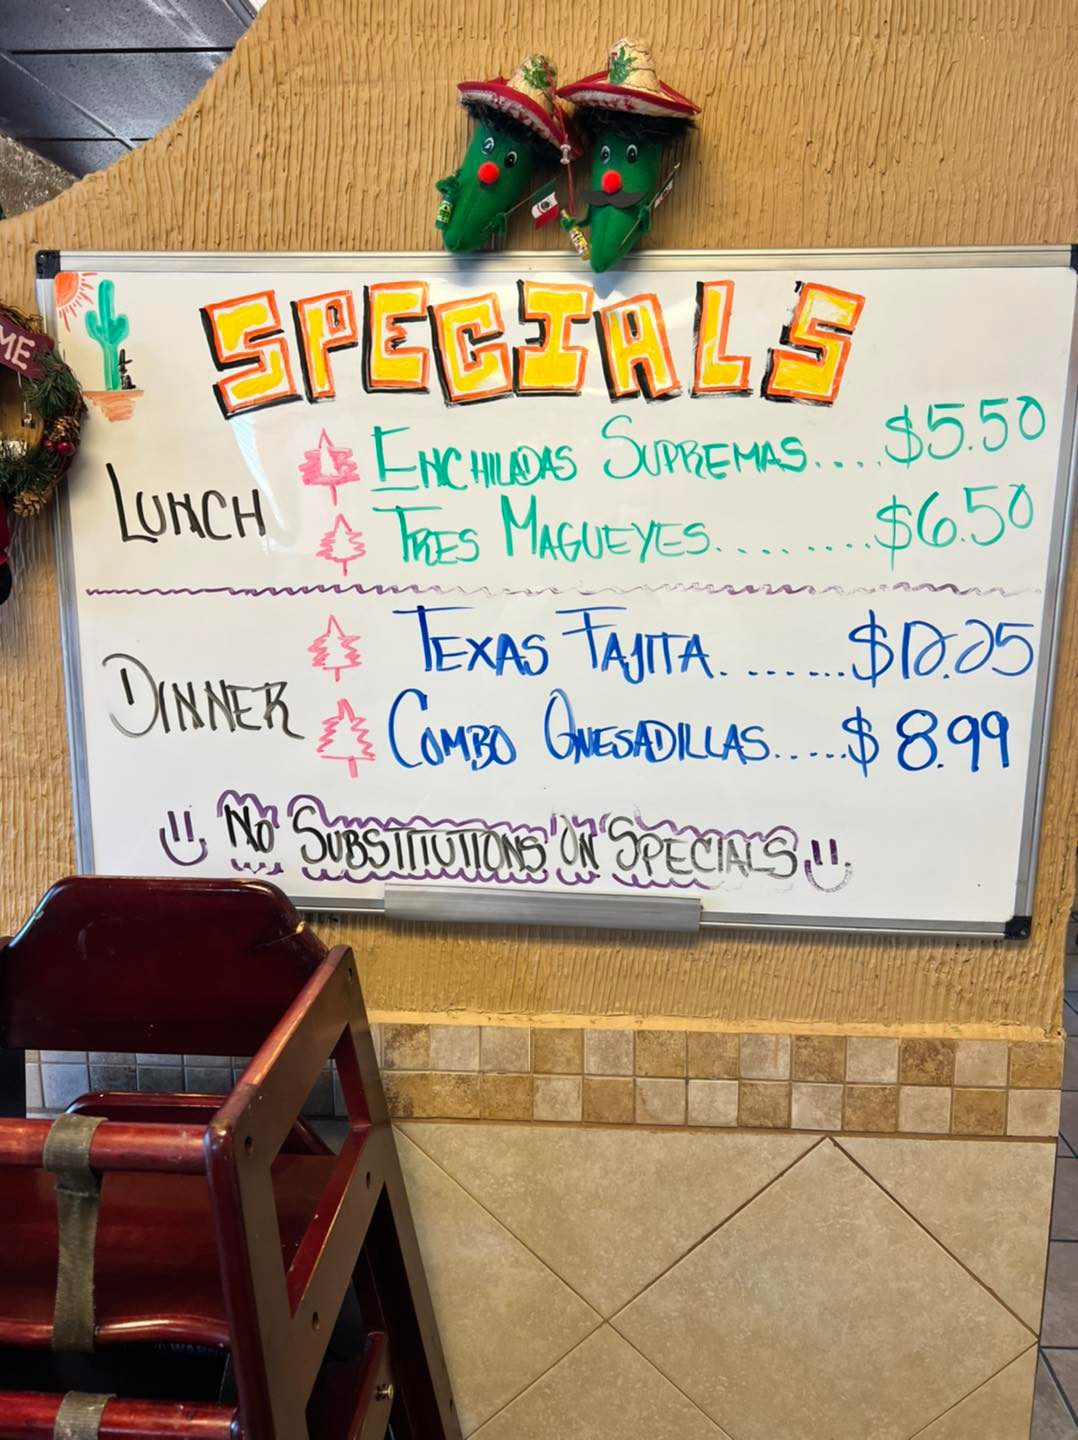 SPECIALS
LUNCH
ENCHILADAS SUPREMAS.... $5.50
TRES MAGUEYES......... $6.50
DINNER
TEXAS FAJITA....... $12.25
COMBO QUESADILLAS..... $8.99
NO SUBSTITUTIONS ON SPECIALS
ME